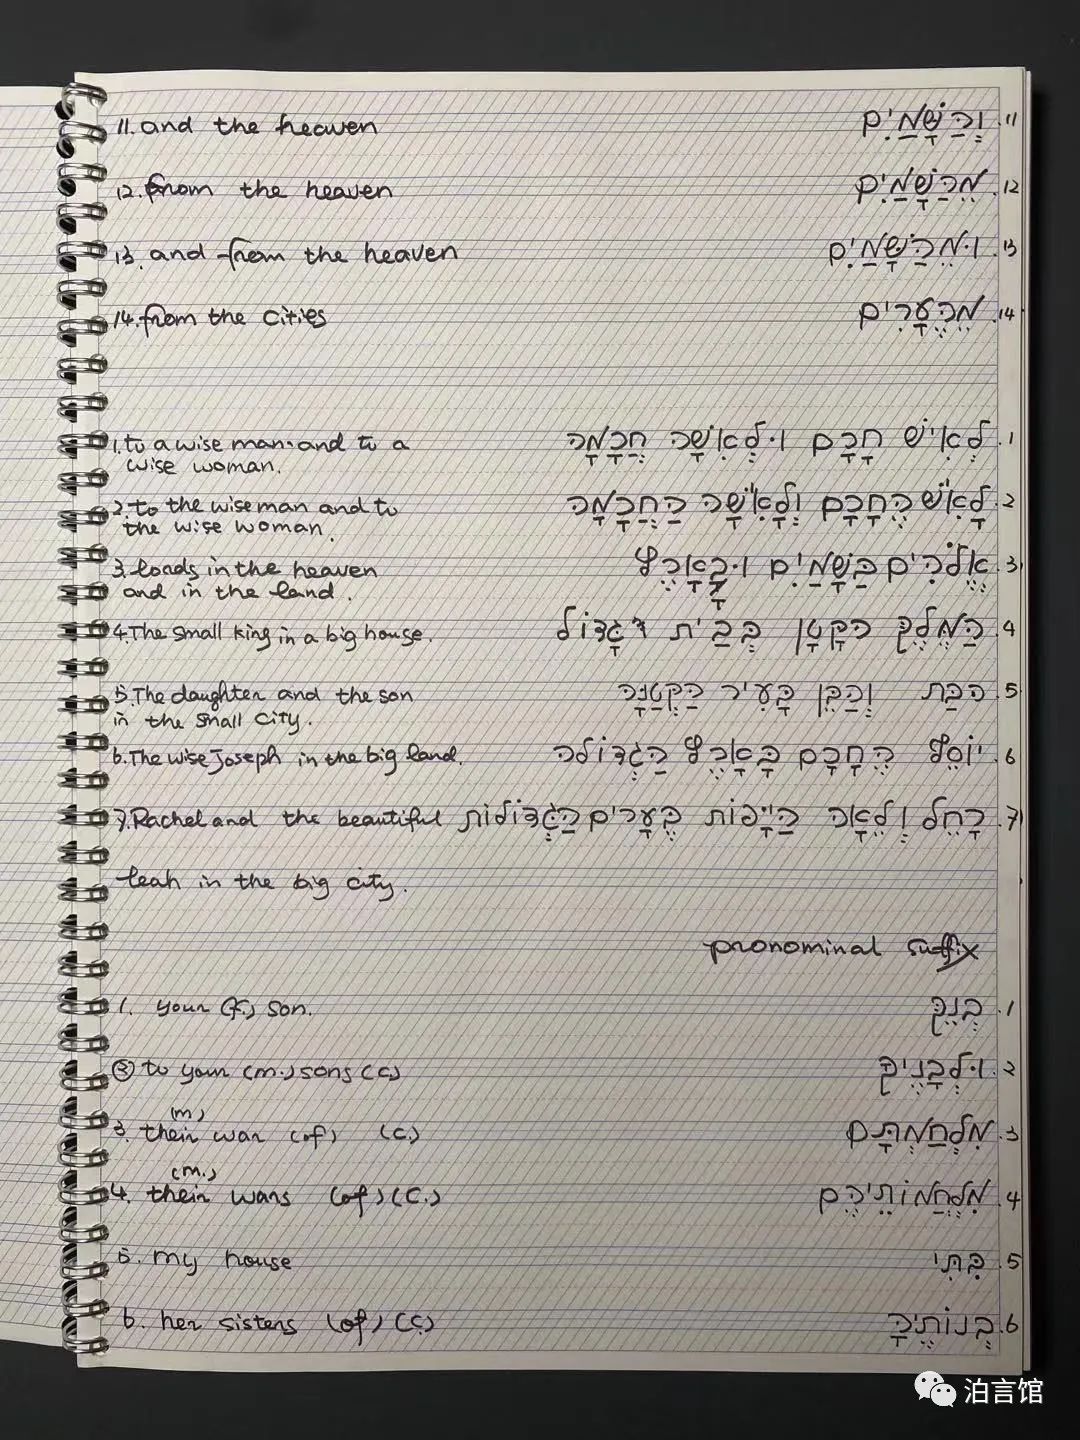 11. and the heaven וְהַשָּׁמַיִם .11
12. from the heaven מֵהַשָּׁמַיִם .12
13. and from the heaven וּמֵהַשָּׁמַיִם .13
14. from the cities מֵהֶעָרִים .14
1. to a wise man and to a לְאִישׁ חָכָם וּלְאִשָּׁה חֲכָמָה .1
wise woman.
2. to the wise man and to לָאִישׁ הֶחָכָם וְלָאִשָּׁה הַחֲכָמָה .2
the wise woman.
3. lords in the heaven אֱלֹהִים בַּשָּׁמַיִם וּבָאָרֶץ .3
and in the land.
4. The small king in a big house. הַמֶּלֶךְ הַקָּטָן בְּבַיִת גָּדוֹל .4
5. The daughter and the son הבַּת וְהַבֵּן בָּעִיר הַקְּטַנָּה .5
in the small city.
6. The wise Joseph in the big land. יוֹסֵף הֶחָכָם בָּאָרֶץ הַגְּדוֹלה .6
7. Rachel and the beautiful רָחֵל וְלֵאָה הַיָּפוֹת בֶּעָרִים הַגְּדוֹלוֹת .7
leah in the big city.
pronominal suffix
1. your (f.) son. בְּנֵךְ .1
② to your (m.) sons (c) וּלְבָנֶיךָ .2
(m)
3. their war (of) (c.) מִלְחַמְתָּם .3
(m.)
4. their wars (of) (c.) מִלְחֲמוֹתֵיהֶם .4
5. my house בִּתִּי .5
6. her sisters (of) (c) בְּנוֹתֶיהָ .6
泊言馆